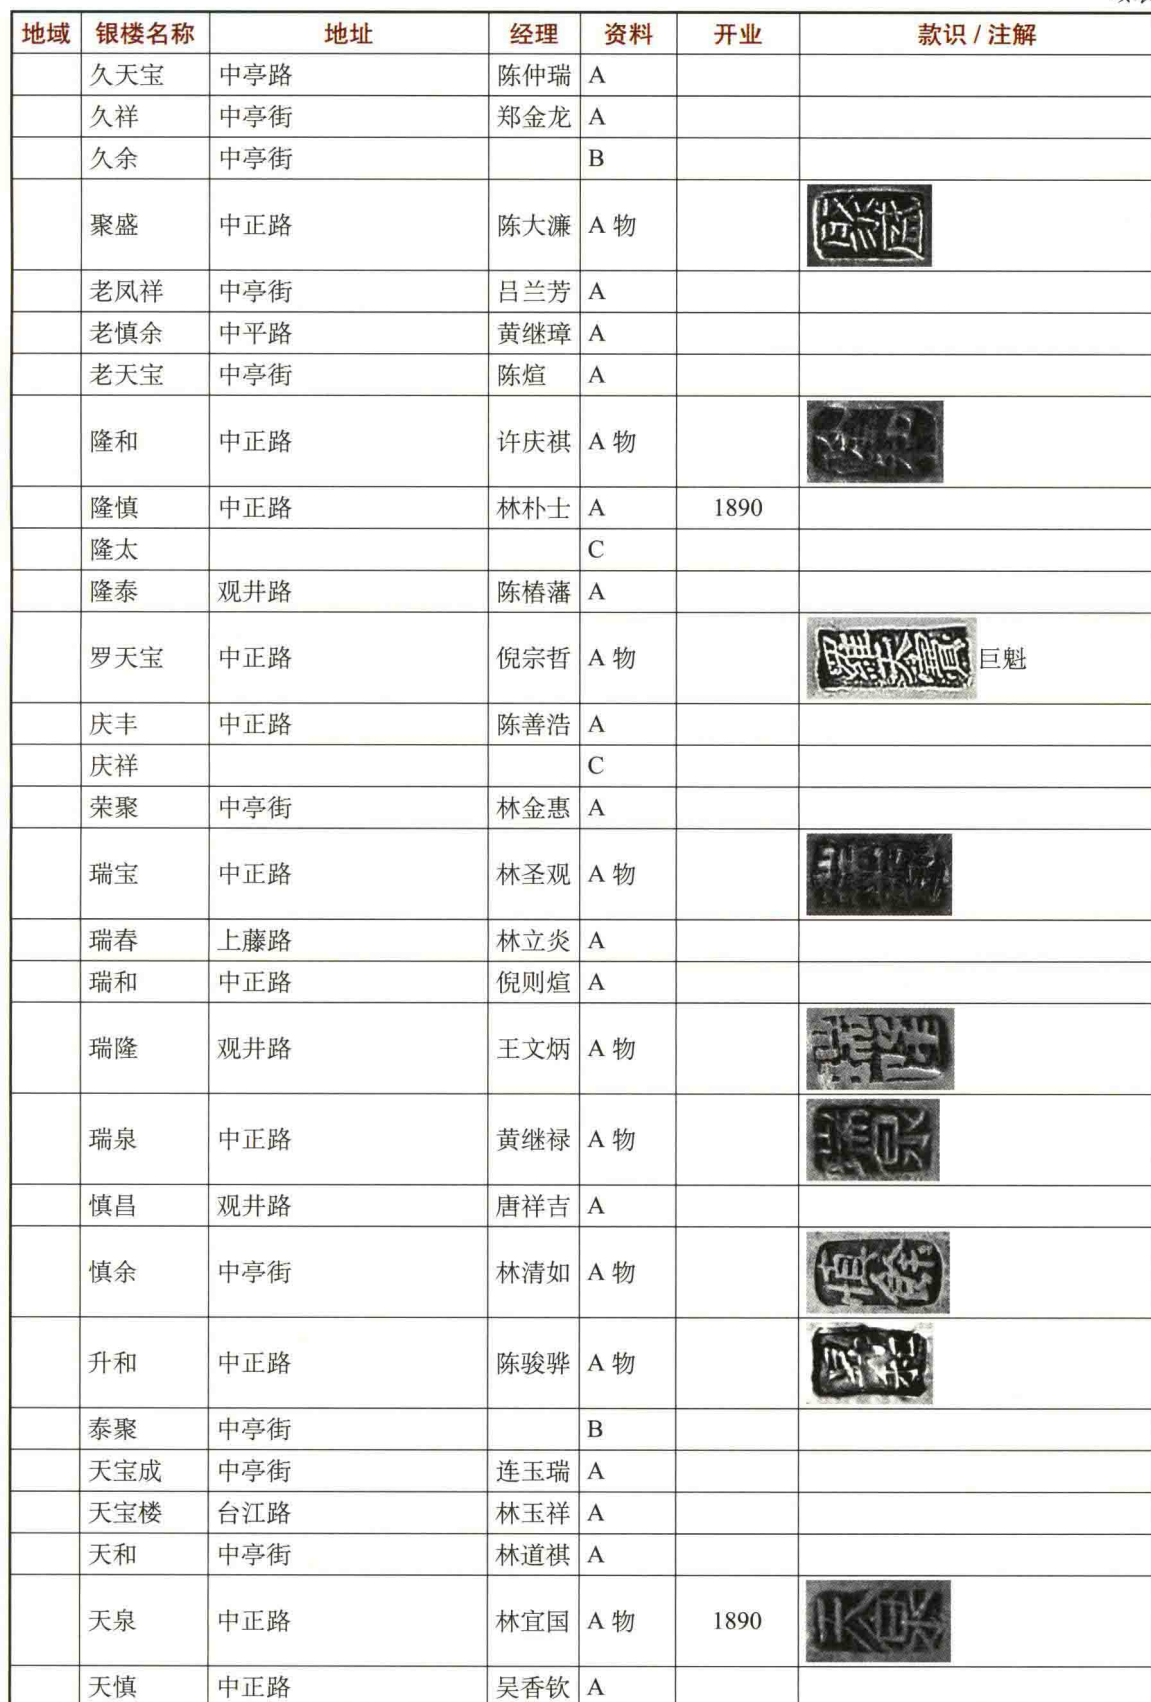 地域 银楼名称 地址 经理 资料 开业 款识 / 注解
久天宝 中亭路 陈仲瑞 A
久祥 中亭街 郑金龙 A
久余 中亭街 B
聚盛 中正路 陈大濂 A 物
老凤祥 中亭街 吕兰芳 A
老慎余 中平路 黄继璋 A
老天宝 中亭街 陈煊 A
隆和 中正路 许庆祺 A 物
隆慎 中正路 林朴士 A 1890
隆太 C
隆泰 观井路 陈椿藩 A
罗天宝 中正路 倪宗哲 A 物 羅天寶 巨魁
庆丰 中正路 陈善浩 A
庆祥 C
荣聚 中亭街 林金惠 A
瑞宝 中正路 林圣观 A 物
瑞春 上藤路 林立炎 A
瑞和 中正路 倪则煊 A
瑞隆 观井路 王文炳 A 物
瑞泉 中正路 黄继禄 A 物 瑞泉
慎昌 观井路 唐祥吉 A
慎余 中亭街 林清如 A 物 慎餘
升和 中正路 陈骏骅 A 物
泰聚 中亭街 B
天宝成 中亭街 连玉瑞 A
天宝楼 台江路 林玉祥 A
天和 中亭街 林道祺 A
天泉 中正路 林宜国 A 物 1890 天泉
天慎 中正路 吴香钦 A